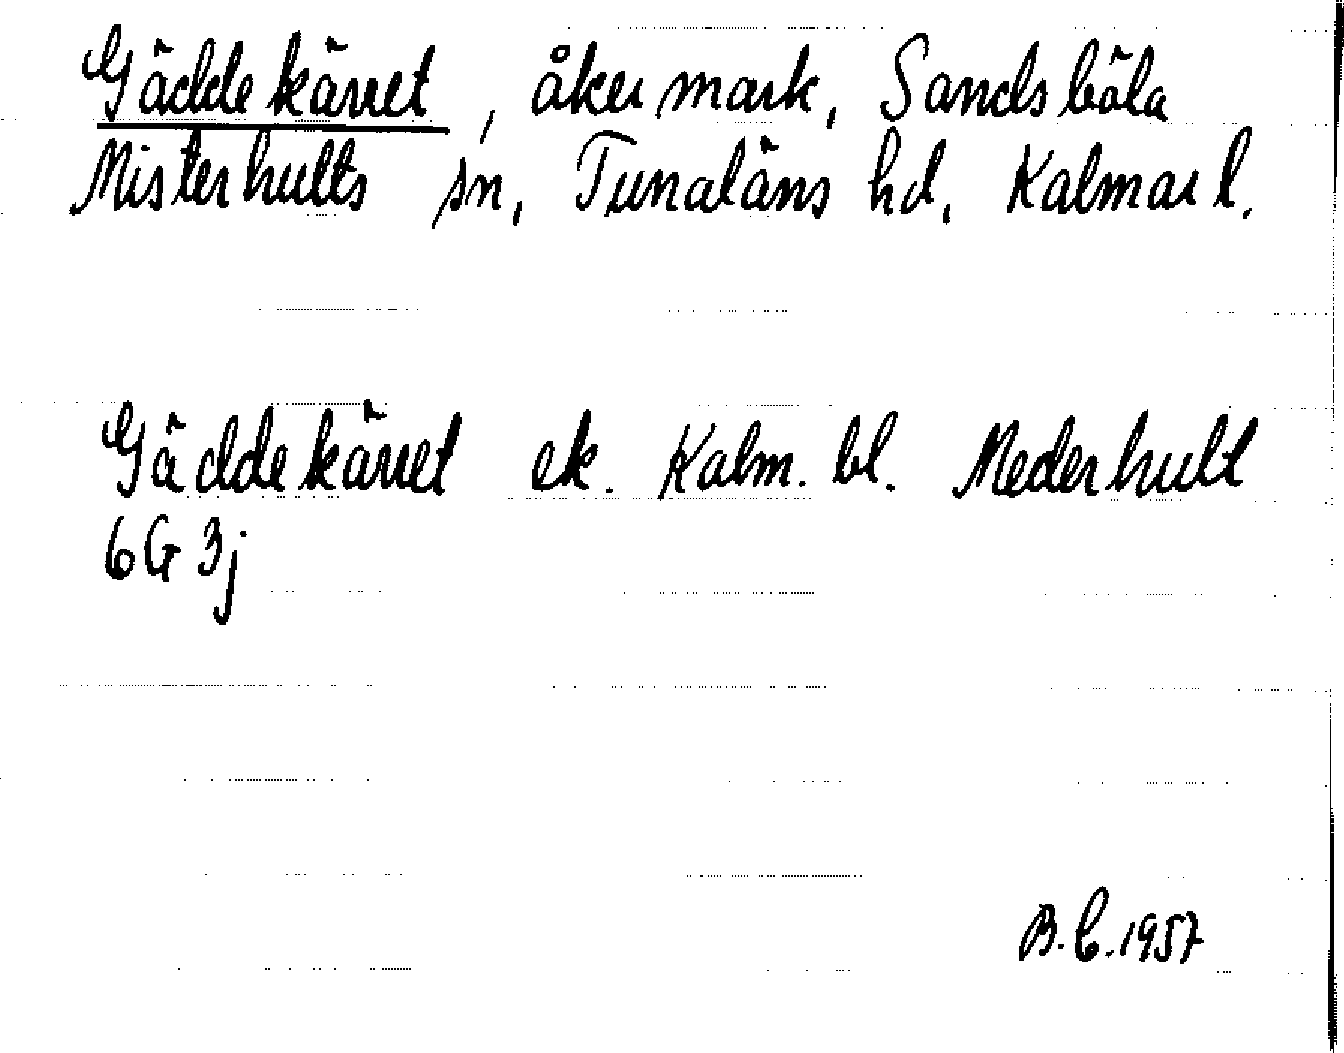 Gäddekärret, åkermark, Sandsböla
Misterhults sn, Tunaläns hd, Kalmar l.
Gäddekärret ek. Kalm. bl. Mederhult
6G 3j
B.C. 1957